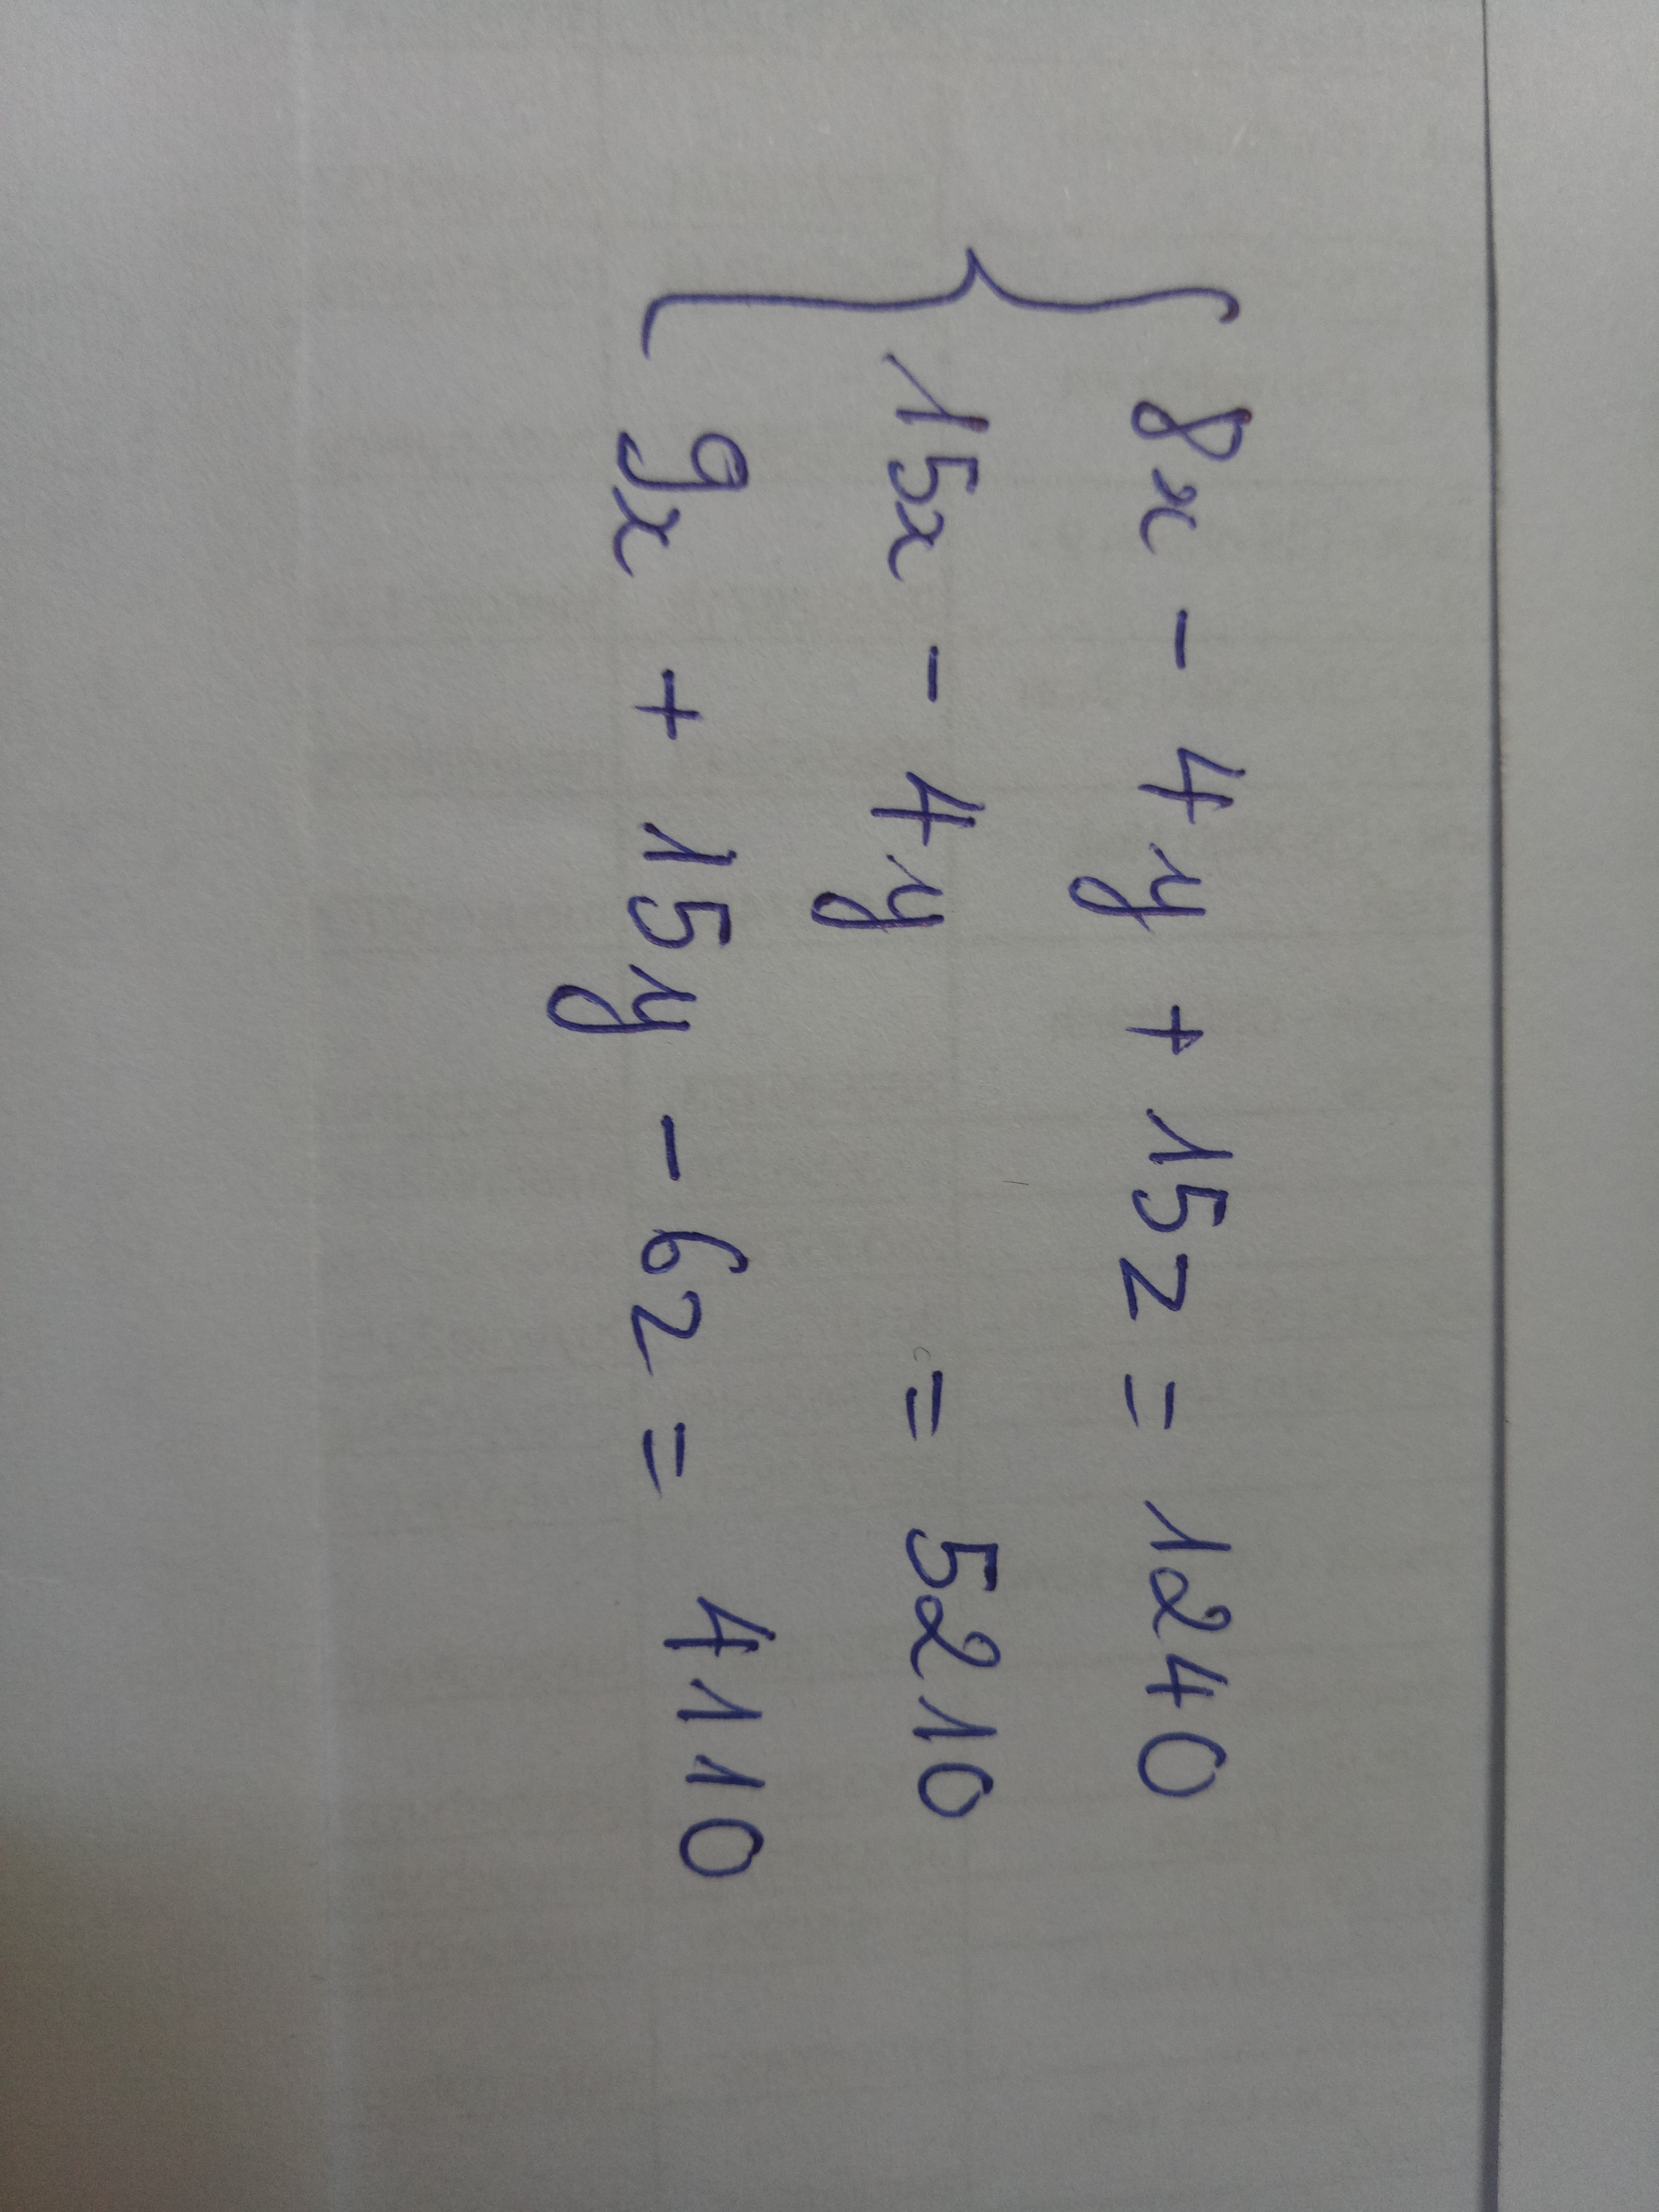 8x - 4y + 15z = 1240
15x - 4y = 5210
9x + 15y - 6z = 4110